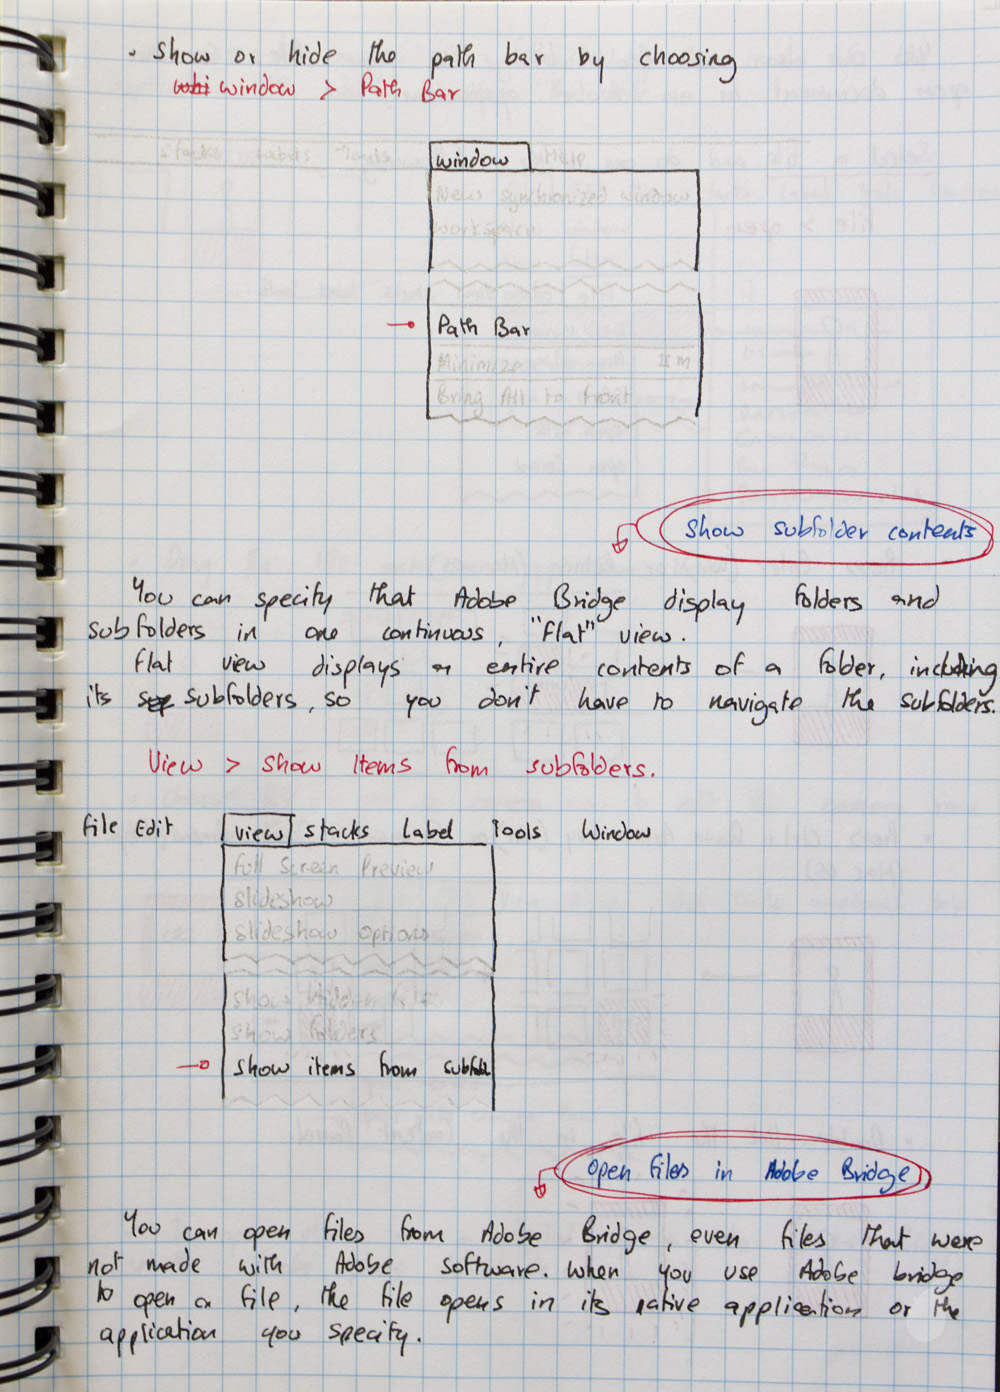 . Show or hide the path bar by choosing
window > Path Bar
window
New synchronized window
workspace
Path Bar
Minimize ⌘ m
Bring All to front
Show subfolder contents
You can specify that Adobe Bridge display folders and
subfolders in one continuous, "flat" view.
flat view displays an entire contents of a folder, including
its subfolders, so you don't have to navigate the subfolders.
View > show Items from subfolders.
file Edit view stacks Label Tools Window
Full Screen Preview
slideshow
slideshow options
show Hidden files
show folders
show items from subfol
Open files in Adobe Bridge
You can open files from Adobe Bridge, even files that were
not made with Adobe software. when you use Adobe bridge
to open a file, the file opens in its native application or the
application you specify.